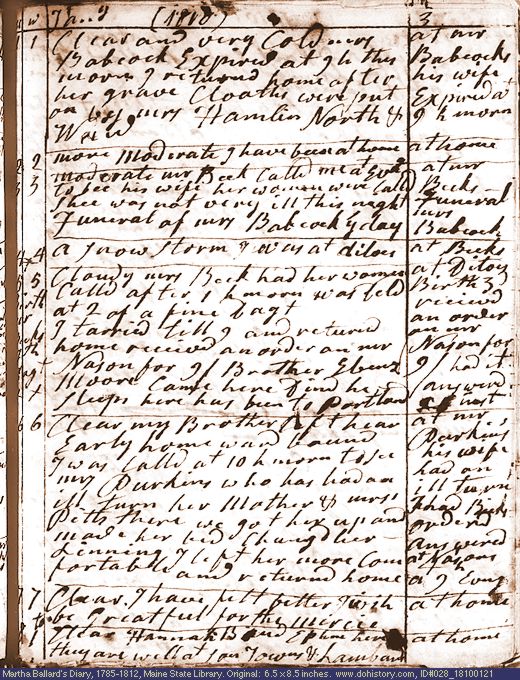 Jan 9 (1810) 3
1 1 Clear and very Cold mrs at mr
Babcock Expired at 9 h this Babcocks
morn I returned home after his wife
her grave Cloaths were put Expired at
on by mrs Hamlin North & 9 h morn
2 2 more moderate I have been at home at home
3 3 moderate mr Beck Calld me at Evn at mr
to see his wife her women were Calld Becks
Shee was not very ill this night Funeral
Funeral of mrs Babcock this day mrs
Babcock
4 4 a snow storm I was at ditoes at Becks
5 5 Cloudy mrs Beck had her women at Ditoes
Calld after 1 h morn was deld Birth 3
at 2 of a fine recievd
I tarried till 9 and returnd an order
home recievd an order on mr on mr
Nason for 9/ Brother Ebenz Nason for
Moore Came here Dind he 9/ had it
sleeps here has been to Portland answerd
6 6 Clear my Brother left hear at mr
Early home ward bound Purkins
I was Calld at 10 h morn to see his wife
mrs Purkins who has had an had an
ill turn her Mother & mrs ill turn
Petts there we got her up and had Becks
made her bed Changd her ordered
Linning I left her more Com answered
fortable and returnd home
at 9 Evng
7 7 Clear. I have felt better I wish at home
be Greatful for the mercie
1 Clear Hannah B and Ephm here at home
they are well at son Towns & Lambard
Martha Ballard's Diary, 1785-1812, Maine State Library. Original: 6.5 x 8.5 inches. www.dohistory.com, ID#028_18100121